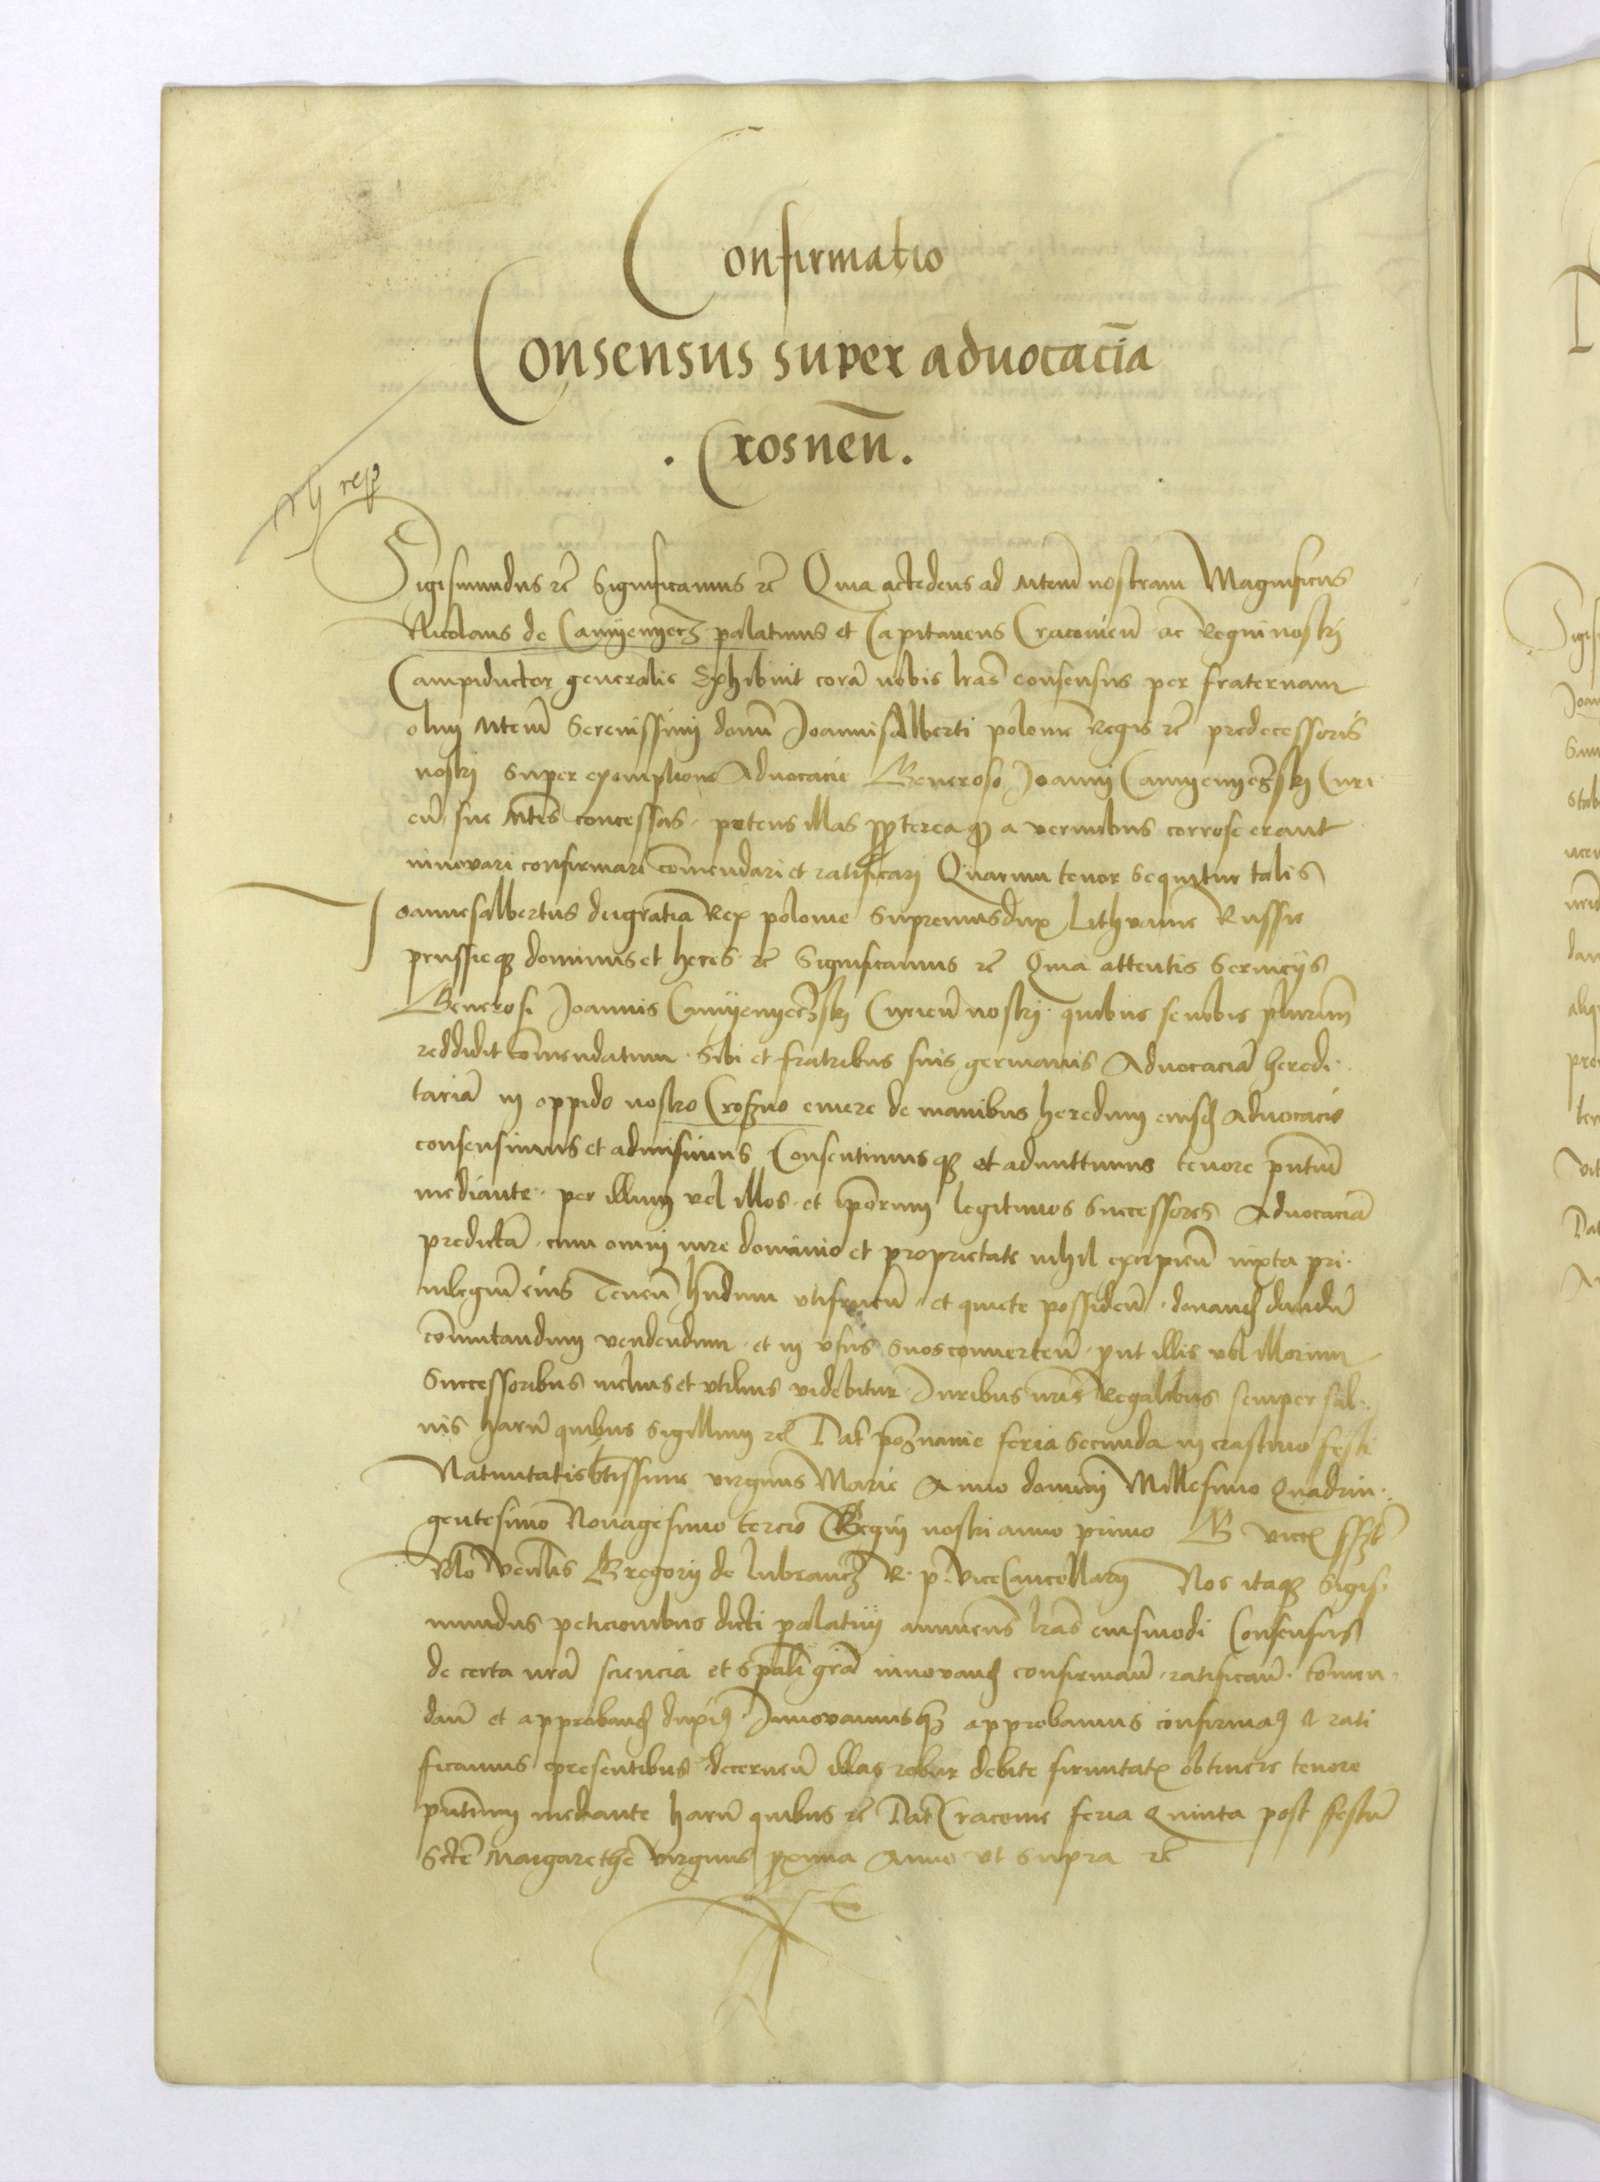 Confirmatio
Consensus super advocacia͞
. Crosnen͞ .
Sigismundus rc͞ Significamus rc͞ Quia accedens ad Mtem͞ nostram Magnificus
Nicolaus de Camyenyecz palatinus et Capitaneus Cracovien͞ ac Regni nostri
Campiductor generalis Exhibuit cora͞ nobis lras͞ consensus per fraternam
olim Mtem͞ Serenissimi domi͞ Joannisalberti polonie Regis rc͞ predecessoris
nostri super exemptione Advocacie Generoso Joanni Camyenyeczski Curi
en͞ sue Mtis͞ concessas . petens illas propterea qz a vermibus corrose erant
innovari confirmari com͞endari et ratificari Quarum tenor sequitur talis
Joannesalbertus dei gratia͞ Rex polonie Supremus dux Lithvanie Russie
prussieqz dominus et heres rc͞ Significamus rc͞ Quia attentis serviciis
Generosi Joannis Camyenyeczski Curien͞ nostri quibus se nobis plurimu͞
reddidit com͞endatum . Sibi et fratribus suis germanis Advocacia͞ heredi .
taria͞ in oppido nostro Croszno emere de manibus heredum eiusd Advocacie
consensimus et admisimus Consentimusqz et admittimus tenore pn͞tiu͞
mediante . per illum vel illos . et ipo͞rum legitimos Successores Advocacia͞
predicta͞ . cum omni iure dominio et proprietate nihil excipien͞ iuxta pri .
vilegiu͞ eius Tenen͞ hn͞dum utifruen͞ . et quiete possiden͞ . donand dandu͞
com͞utandum vendendum . et in usus suos converten͞ . prout illis vel illorum
Successoribus melius et utilius videbitur . Juribus nris͞ Regalibus semper sal .
vis haru͞ quibus sigillum rc͞ Dat͞ poznanie feria secunda in crastino festi
Nativitatis btissime virginis Marie Anno domini Millesimo Quadrin .
gentesimo Nonagesimo tercio Regni nostri anno primo G vicex sszt͞
Rlo Venlis͞ Gregorii de lubrancz R . p . ViceCancellarii Nos itaqz Sigis .
mundus peticionibus dicti palatini annuens lras͞ eiusmodi Consensus
de certa nra͞ sciencia et spali͞ gra͞ innovand confirman͞ . ratifican͞ . com͞en .
dan͞ et approband duximus Innovamusqz approbamus confirmamus et rati
ficamus presentibus decernen͞ illas robur debite firmitatis obtinere tenore
pn͞tium mediante haru͞ quibus rc͞ Dat͞ Cracovie feria Quinta post festu͞
Scte͞ Margarethe virginis proxima Anno ut supra rc͞